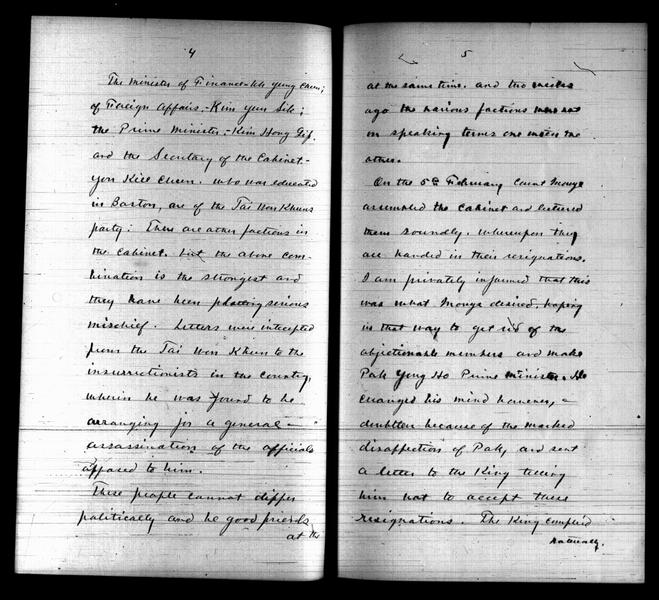 4
The minister of Finance - Uh yung Chun;
of Foreign Affairs. - Kim Yun Sik;
the Prime Minister. - Kim Hong Jip.
and the Secretary of the Cabinet -
Yon Kill Chun. who was educated
in Boston, are of the Tai Won Khuns
party. There are other factions in
the Cabinet. but the above com-
bination is the strongest and
they have been plotting serious
mischief. Letters were intercepted
from the Tai Won Khun to the
insurrectionists in the country,
wherein he was found to be
arranging for a general
assassination of the officials
opposed to him.
These people cannot differ
politically and be good friends
at the
5
at the same time. and two weeks
ago the various factions were not
on speaking terms one with the
other.
On the 5th February Count Inouye
assembled the Cabinet and lectured
them soundly. whereupon they
all handed in their resignations.
I am privately informed that this
was what Inouye desired, hoping
in that way to get rid of the
objectionable members and make
Pak Yong Ho Prime Minister. He
changed his mind however, -
doubtless because of the marked
disaffection of Pak, and sent
a letter to the King telling
him not to accept these
resignations. The King complied
naturally.